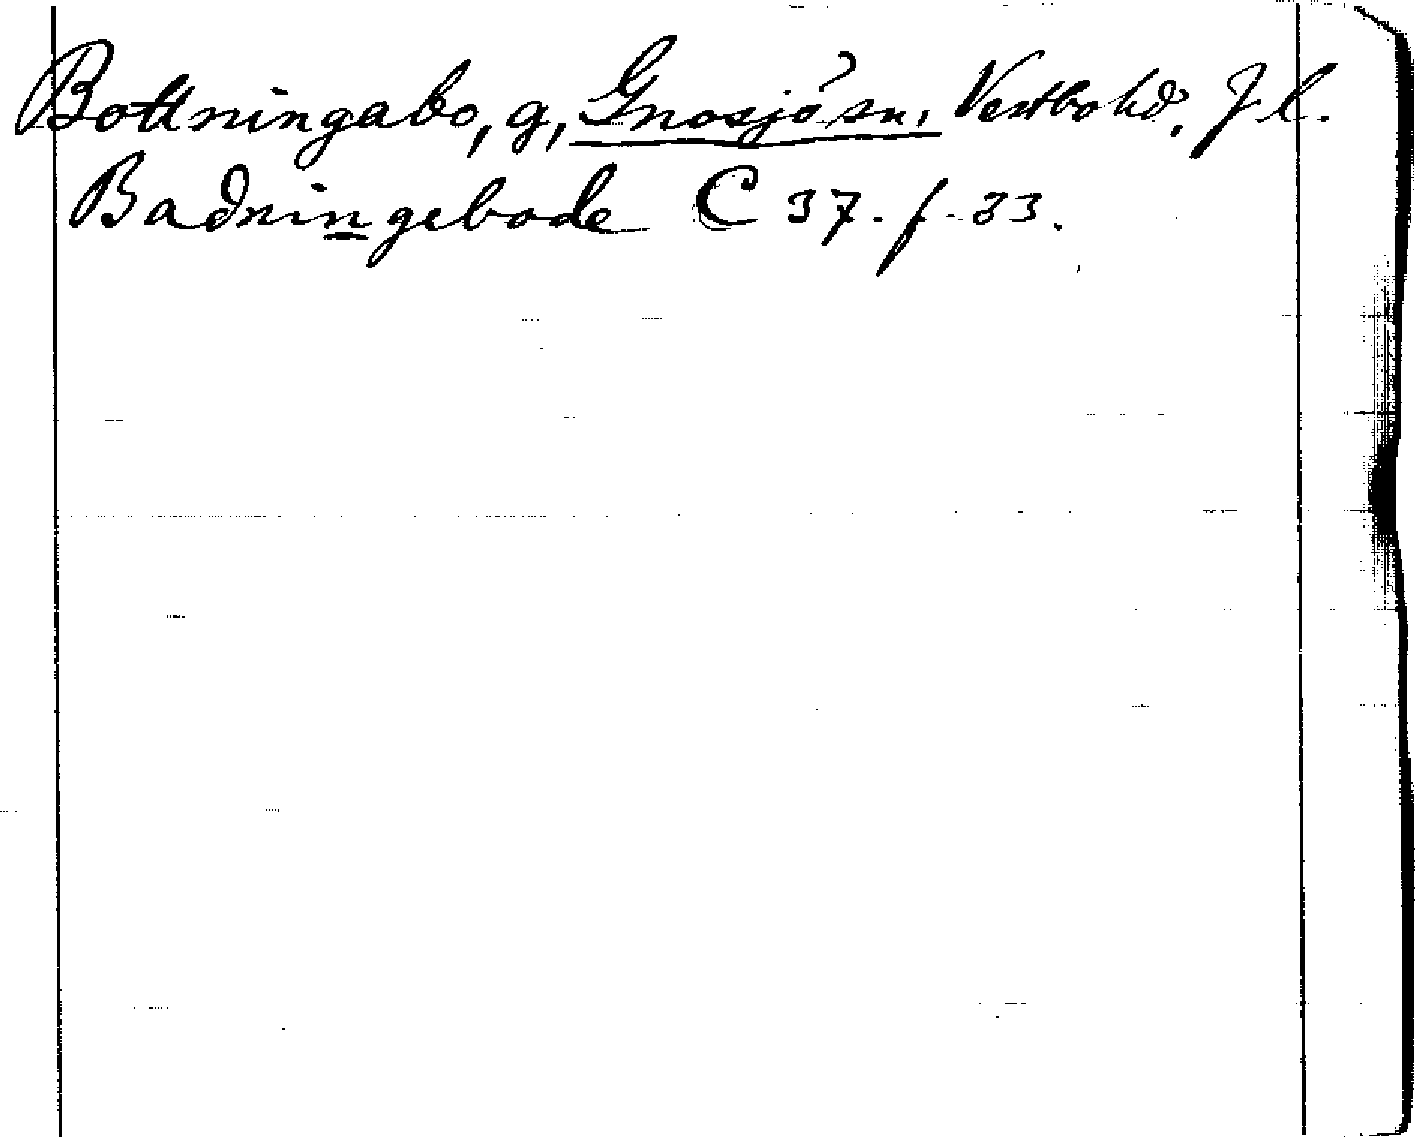 Bottningabo, g, Gnosjö sn, Vestbo hd, J. l.
Badningebode C 37. f. 33.